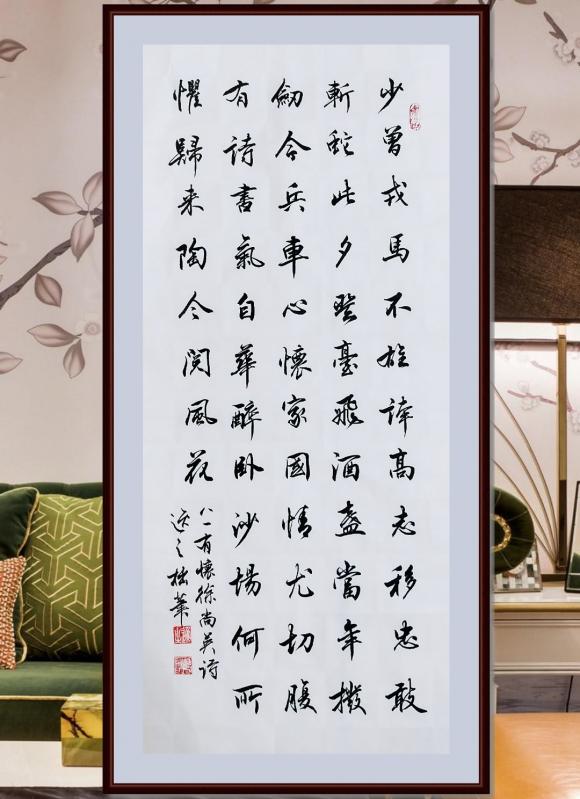 少曾戎馬不雄誇高志移忠敢
斬蛇此夕登臺飛酒盞當年撥
劍令兵車心懷家國情尤切腹
有詩書氣自華醉臥沙場何所
懼歸来陶令閱風花
八一有懷徐尚英詩
之拙筆